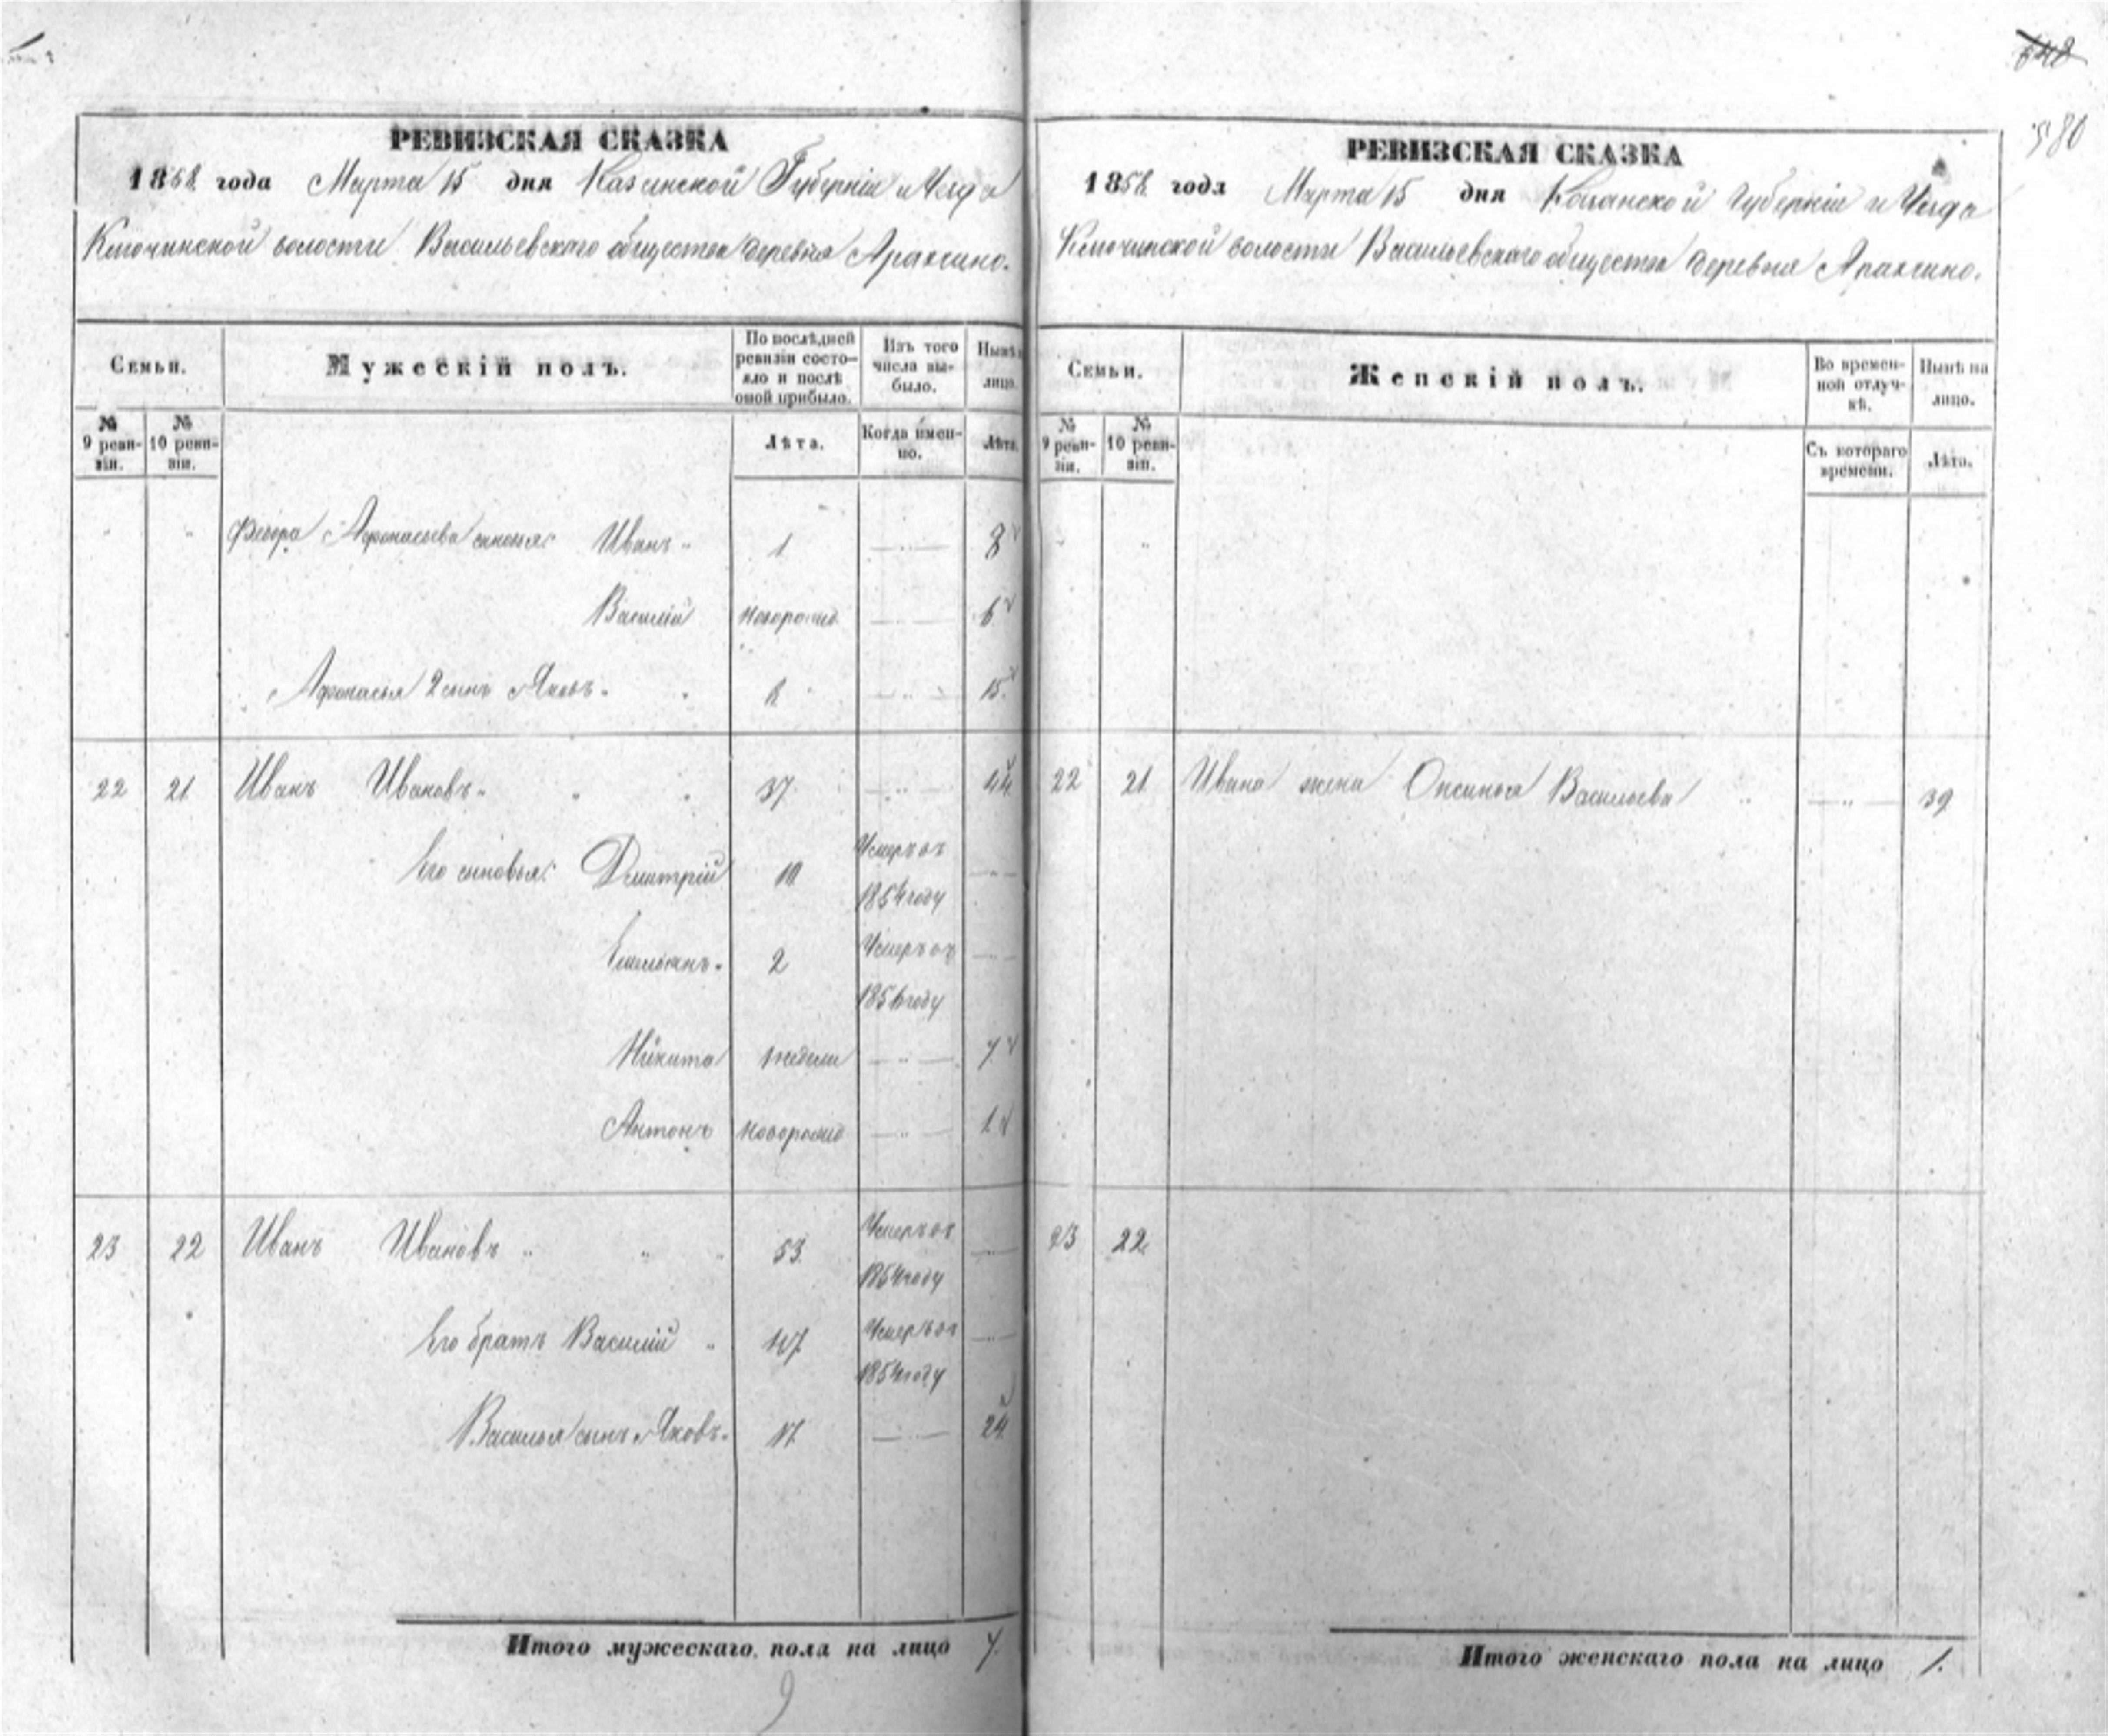 580
РЕВИЗСКАЯ СКАЗКА
1858 года Марта 15 дня Казанской Губерніи и Уезда
Ключинской волости Васильевскаго общества деревня Аракчино.
Семьи.
Мужескій полъ.
По послѣдней ревизіи состояло и послѣ оной прибыло.
Изъ того числа выбыло.
Нынѣ на лицо.
№ 9 ревизіи.
№ 10 ревизіи.
Лѣта.
Когда именно.
Лѣта.
Федора Афонасьева сыновья: Иванъ 1 8
Василій новорожд 6
Афонасья 2 сынъ Яковъ 8 15
22 21 Иванъ Ивановъ 37 44
Его сыновья: Дмитрій 10 Умеръ въ 1854 году
Емельянъ 2 Умеръ въ 1856 году
Никита недели 7
Антонъ новорожд 1
23 22 Иванъ Ивановъ 53 Умеръ въ 1854 году
Его братъ Василій 47 Умеръ въ 1854 году
Василья сынъ Яковъ 17 24
Итого мужескаго пола на лицо 7.
РЕВИЗСКАЯ СКАЗКА
1858 года Марта 15 дня Казанской Губерніи и Уезда
Ключинской волости Васильевскаго общества деревня Аракчино.
Семьи.
Женскій полъ.
Во временной отлучкѣ.
Нынѣ на лицо.
№ 9 ревизіи.
№ 10 ревизіи.
Съ котораго времени.
Лѣта.
22 21 Ивана жена Оксинья Васильева 39
23 22
Итого женскаго пола на лицо 1.